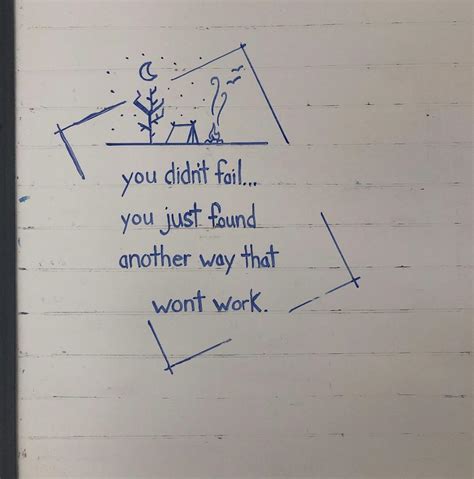 you didn't fail...
you just found
another way that
wont work.